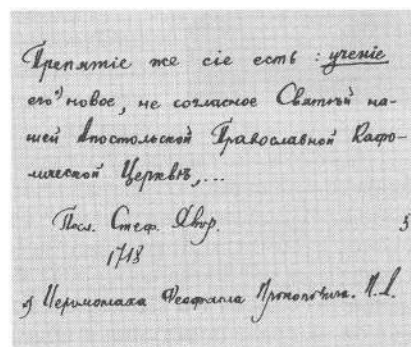 Препятіе же сіе есть: ученіе
его*) новое, не согласное Святѣй на-
шей Апостольской Православной Кафо-
лической Церквѣ,...
Посл. Стеф. Явор.
1718
Іеромонаха Феофана Прокоповича. П.А.